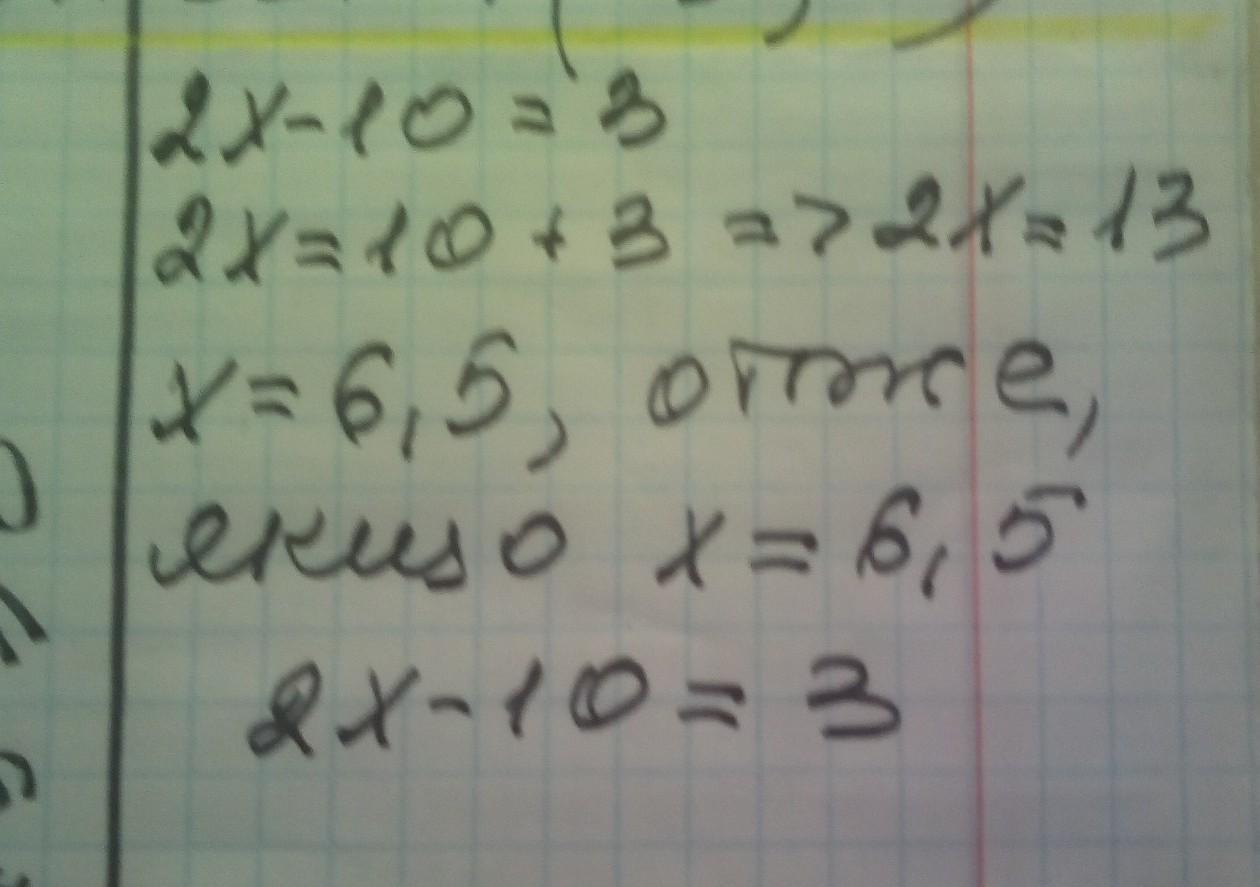 2x-10=3
2x=10+3 => 2x=13
x=6,5, отже,
якщо x=6,5
2x-10=3